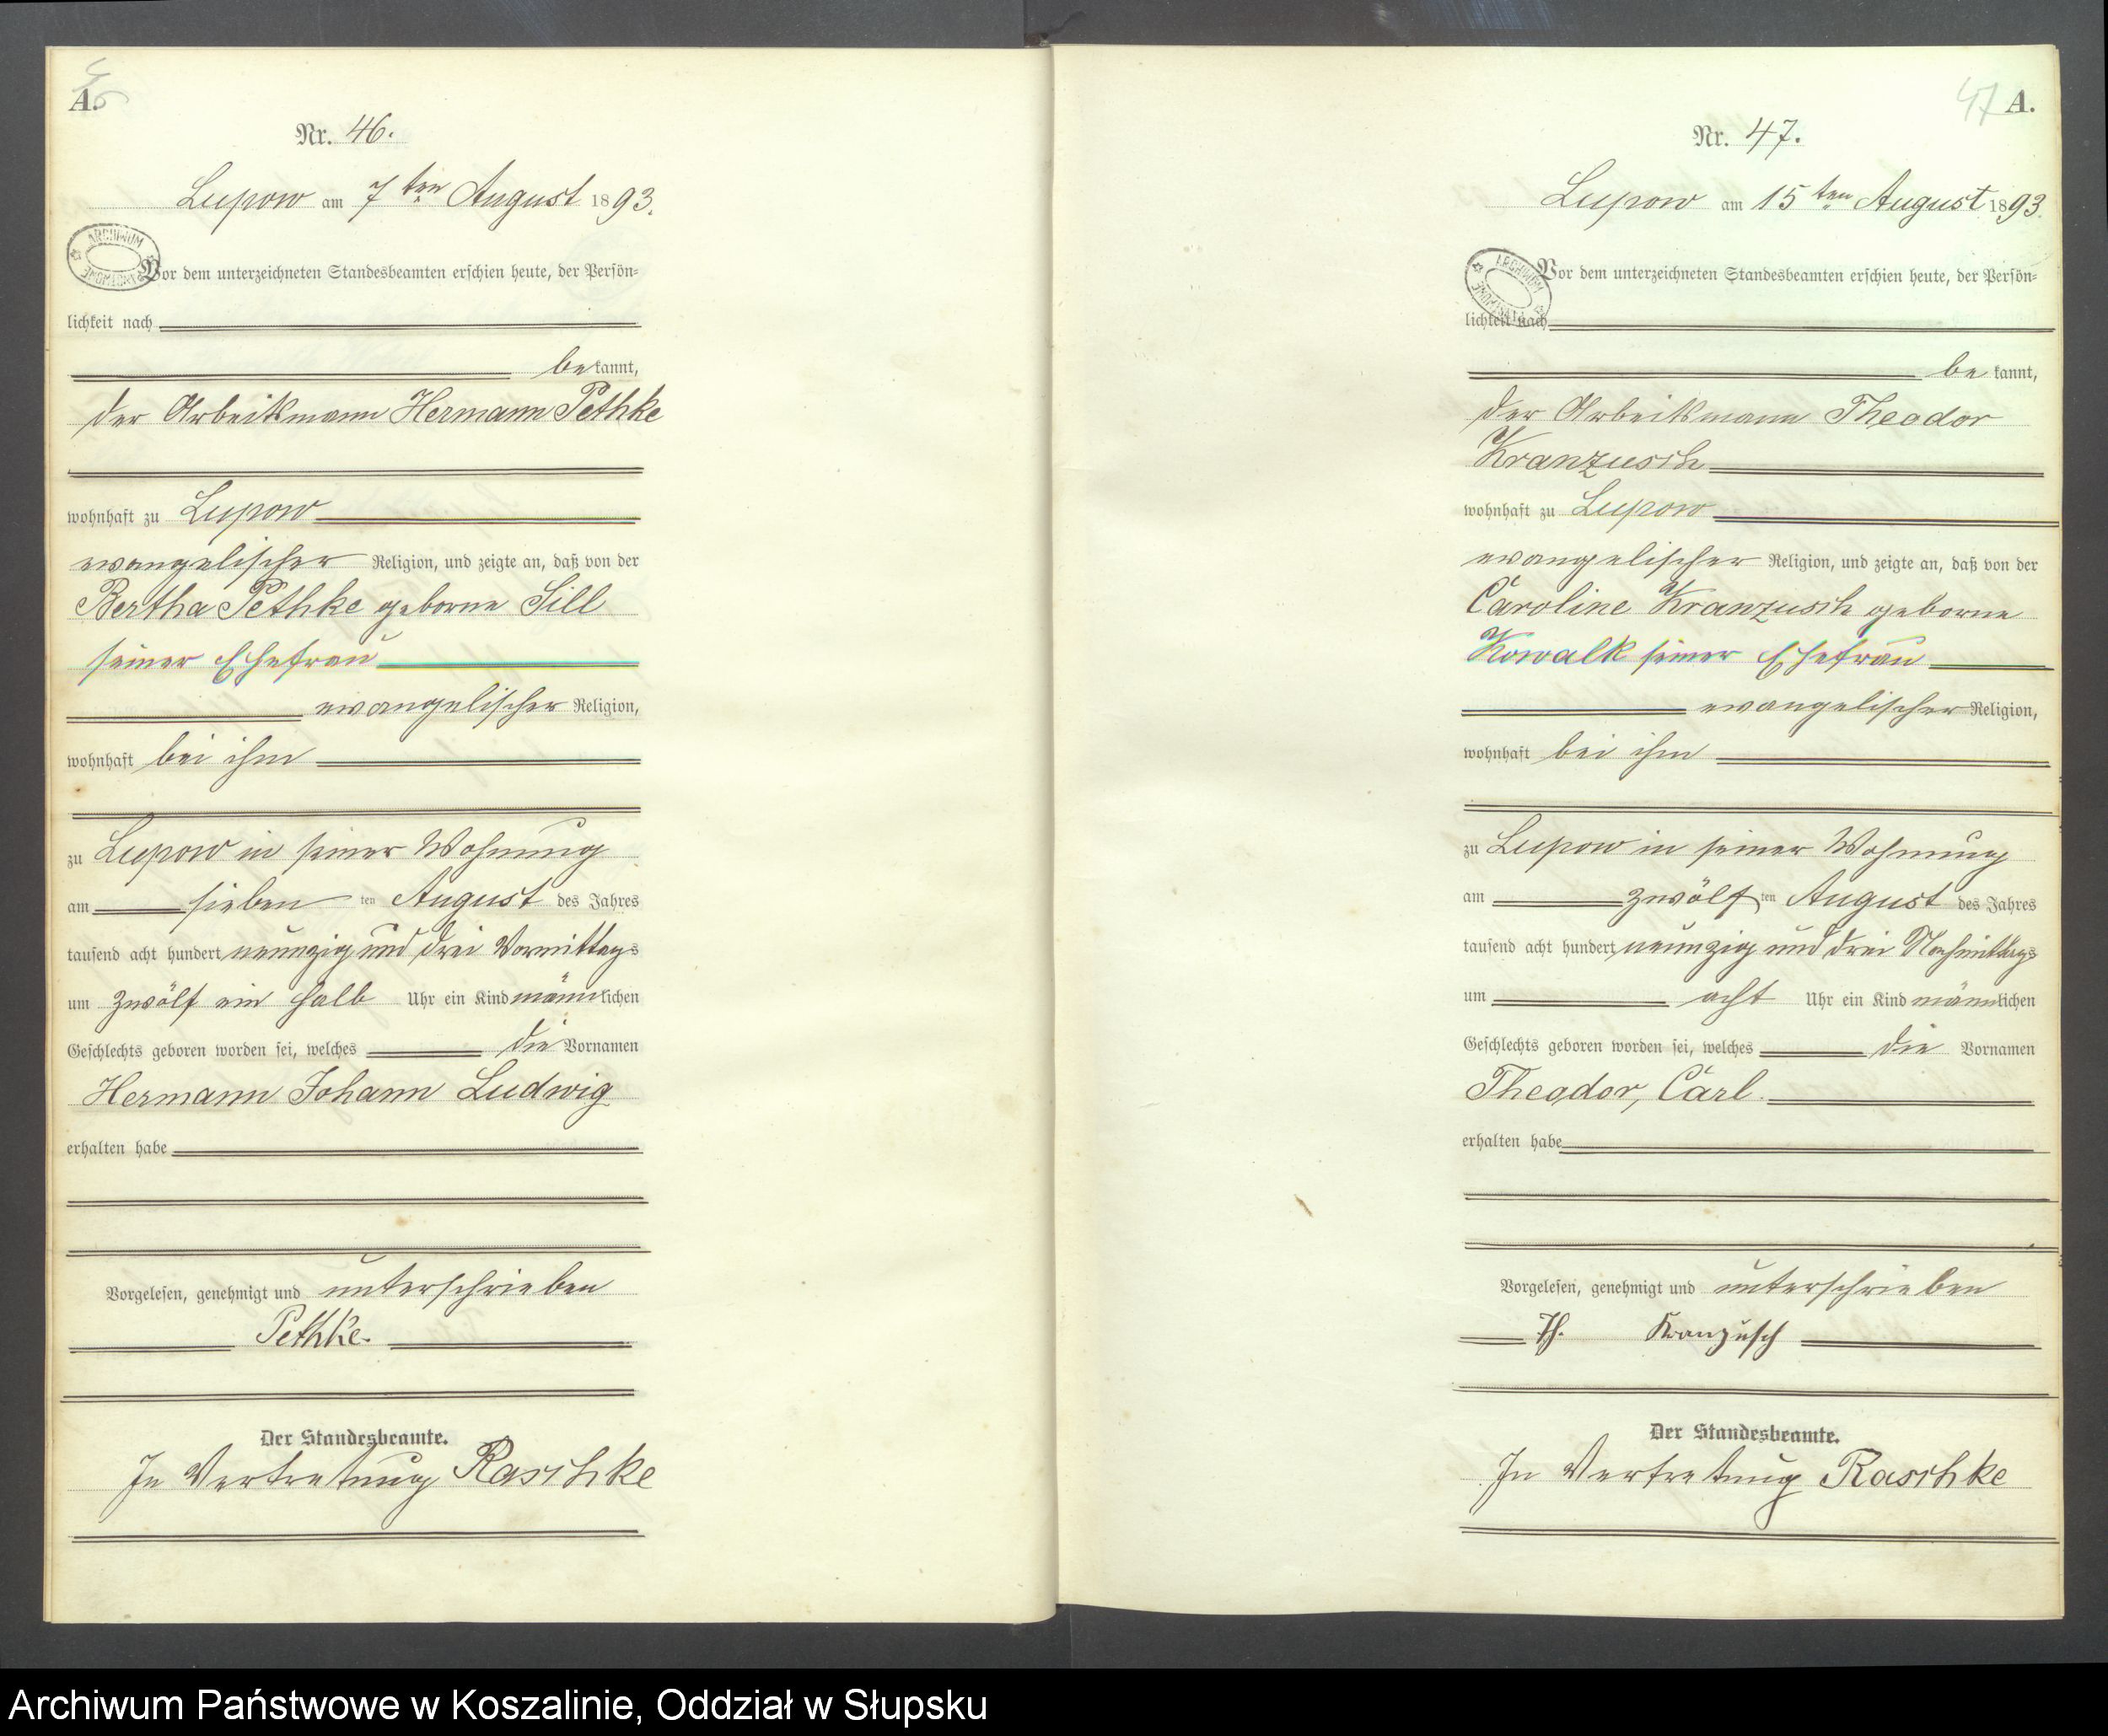 46
A.
Nr. 46.
Lupow am 7ten August 1893.
ARCHIWUM
Vor dem unterzeichneten Standesbeamten erschien heute, der Persön=
lichkeit nach
bekannt,
der Arbeitsmann Hermann Pethke
wohnhaft zu Lupow
evangelischer Religion, und zeigte an, daß von der
Bertha Pethke geborne Sill
seiner Ehefrau
evangelischer Religion,
wohnhaft bei ihm
zu Lupow in seiner Wohnung
am sieben ten August des Jahres
tausend acht hundert neunzig und drei Vormittags
um zwölf ein halb Uhr ein Kind männlichen
Geschlechts geboren worden sei, welches die Vornamen
Hermann Johann Ludwig
erhalten habe
Vorgelesen, genehmigt und unterschrieben
Pethke.
Der Standesbeamte.
In Vertretung Raschke
47 A.
Nr. 47.
Lupow am 15ten August 1893.
ARCHIWUM
Vor dem unterzeichneten Standesbeamten erschien heute, der Persön=
lichkeit nach
bekannt,
der Arbeitsmann Theodor
Kranzusch
wohnhaft zu Lupow
evangelischer Religion, und zeigte an, daß von der
Caroline Kranzusch geborne
Kowalk seiner Ehefrau
evangelischer Religion,
wohnhaft bei ihm
zu Lupow in seiner Wohnung
am zwölf ten August des Jahres
tausend acht hundert neunzig und drei Nachmittags
um acht Uhr ein Kind männlichen
Geschlechts geboren worden sei, welches die Vornamen
Theodor, Carl.
erhalten habe
Vorgelesen, genehmigt und unterschrieben
Th. Kranzusch
Der Standesbeamte.
In Vertretung Raschke
Archiwum Państwowe w Koszalinie, Oddział w Słupsku